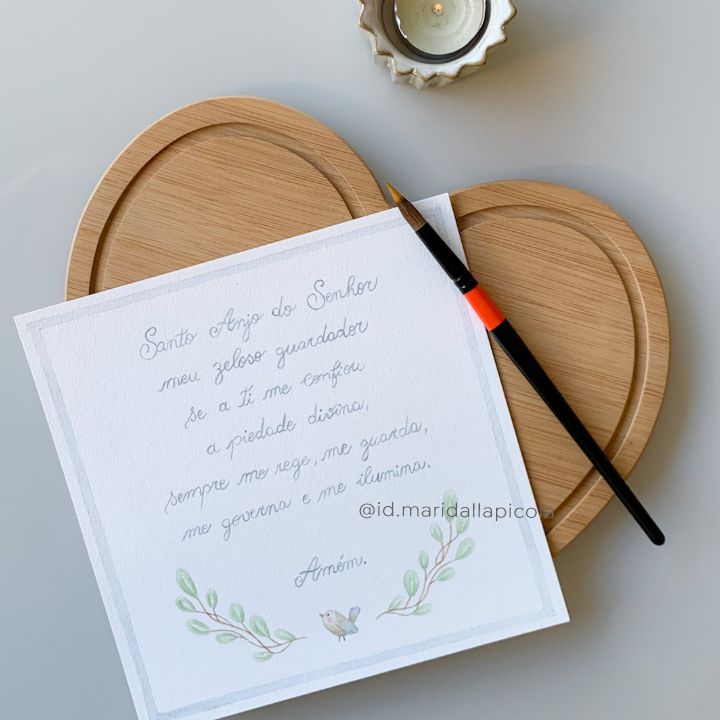 Santo Anjo do Senhor
meu zeloso guardador
se a ti me confiou
a piedade divina,
sempre me rege, me guarda,
me governa e me ilumina.
@id.maridallapicola
Amém.